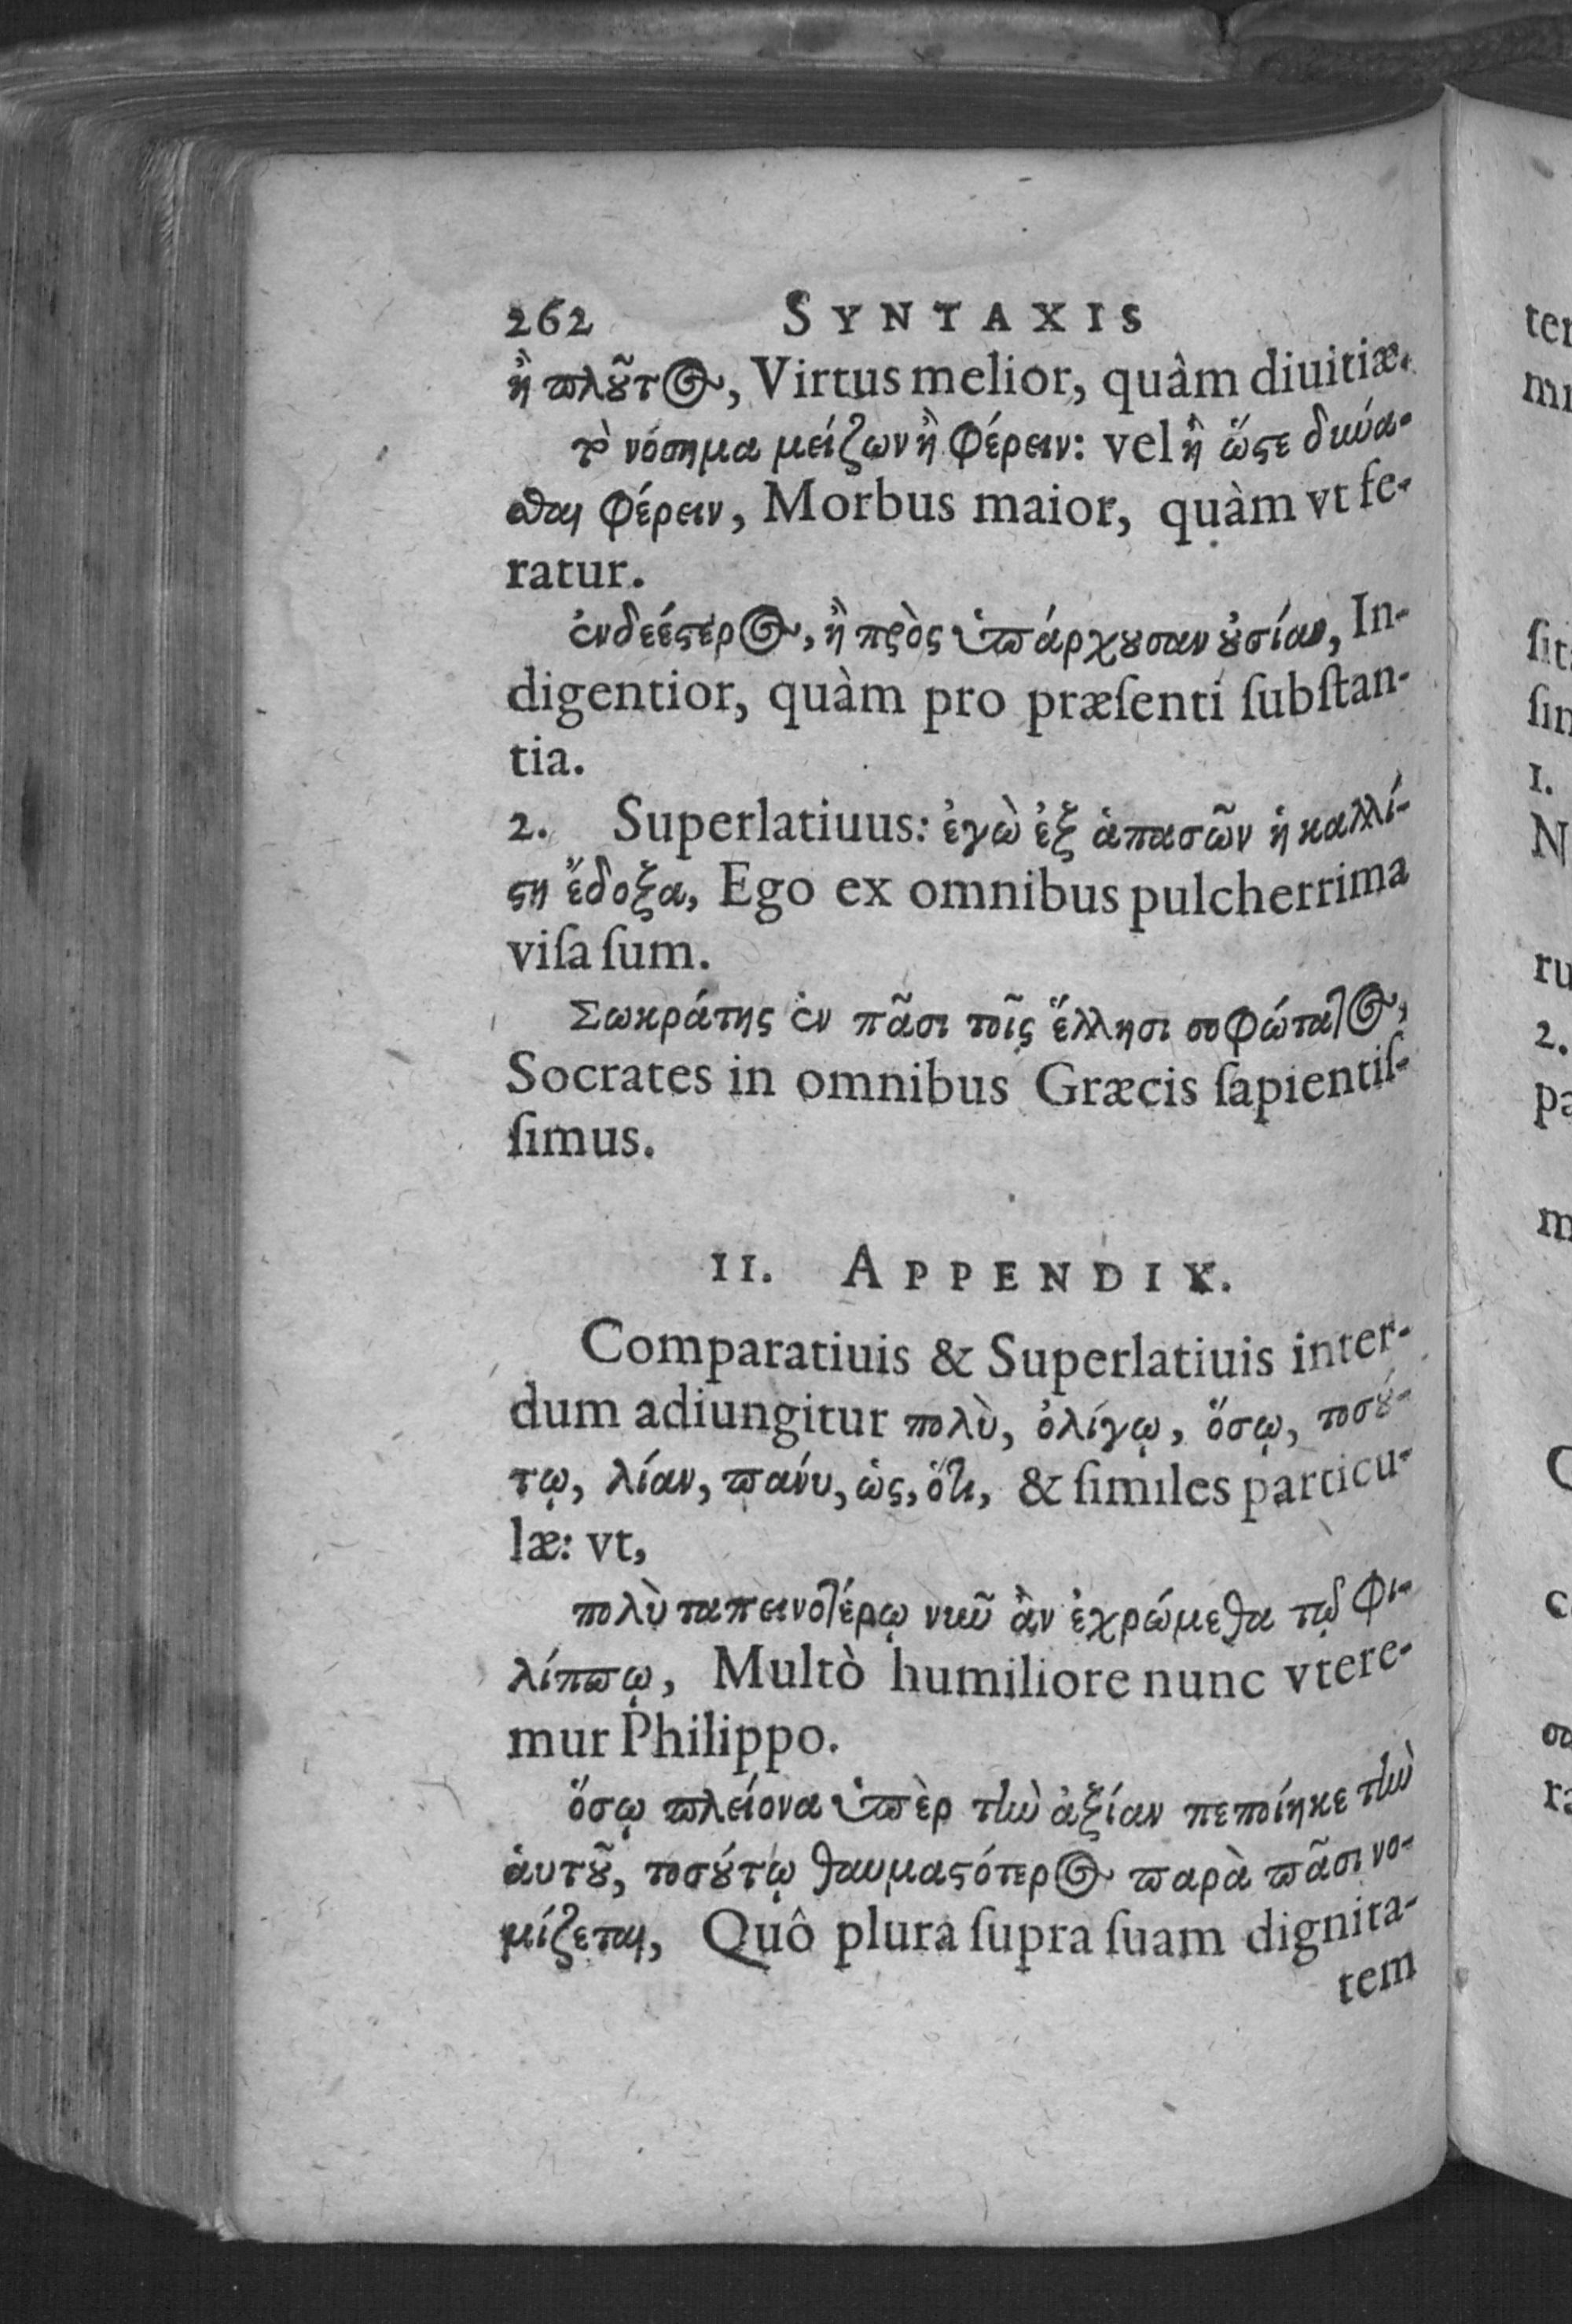 262 SYNTAXIS
ἢ πλοῦτος, Virtus melior, quàm diuitiæ.
τὸ νόσημα μείζων ἢ φέρειν: vel ἢ ὥστε δύνα-
σθαι φέρειν, Morbus maior, quàm vt fe-
ratur.
ἐνδεέστερος, ἢ πρὸς ὑπάρχουσαν οὐσίαν, In-
digentior, quàm pro præſenti ſubſtan-
tia.
2. Superlatiuus: ἐγὼ ἐξ ἁπασῶν ἡ καλλί-
στη ἔδοξα, Ego ex omnibus pulcherrima
viſa ſum.
Σωκράτης ἐν πᾶσι τοῖς ἕλλησι σοφώτατος,
Socrates in omnibus Græcis ſapientiſ-
ſimus.
II. APPENDIX.
Comparatiuis & Superlatiuis inter-
dum adiungitur πολὺ, ὀλίγῳ, ὅσῳ, τοσού-
τῳ, λίαν, πάνυ, ὡς, ὅτι, & ſimiles particu-
læ: vt,
πολὺ ταπεινοτέρῳ νῦν ἂν ἐχρώμεθα τῷ Φι-
λίππῳ, Multò humiliore nunc vtere-
mur Philippo.
ὅσῳ πλείονα ὑπὲρ τὴν ἀξίαν πεποίηκε τὴν
ἁυτοῦ, τοσούτῳ θαυμαστότερος παρὰ πᾶσι νο-
μίζεται, Quô plura ſupra ſuam dignita-
tem